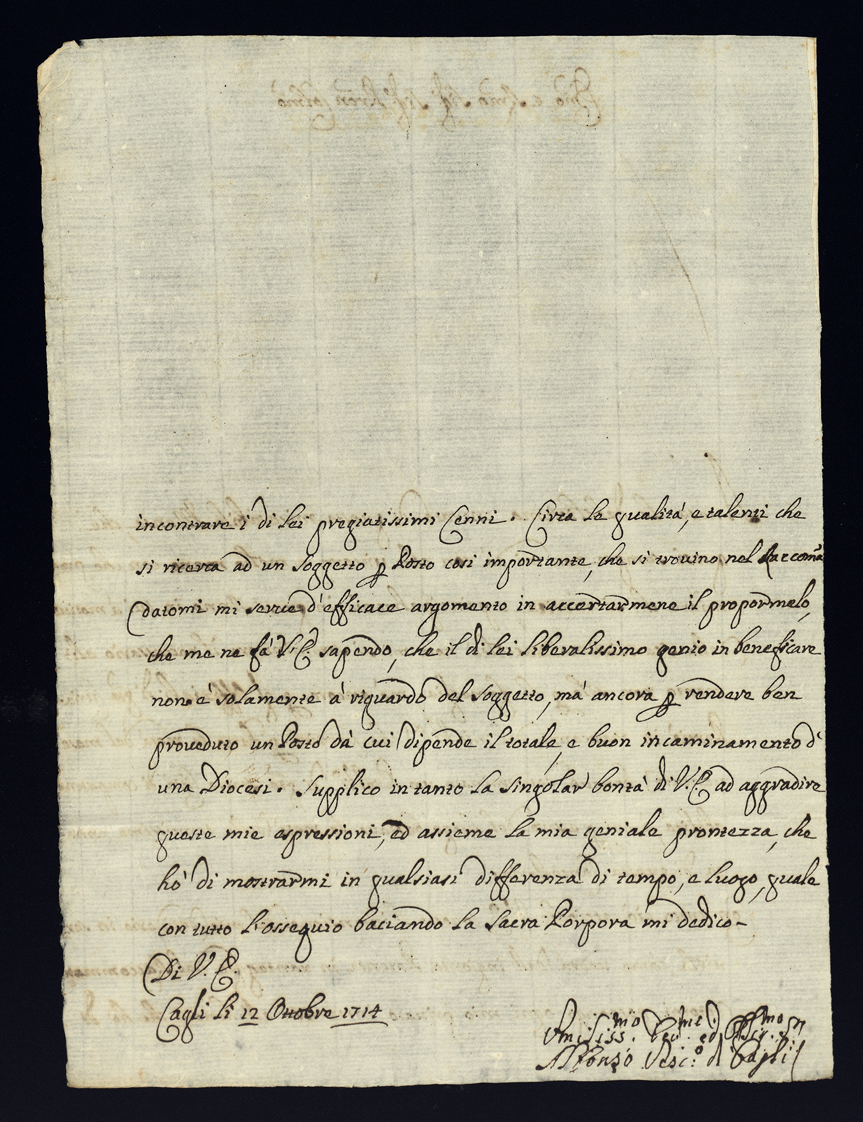 incontrare i di lei pregiatissimi Cenni. Circa le qualità, e talenti che
si ricerca ad un soggetto p Posto così importante, che si trovino nel Raccoman
datomi mi serve d'efficace argomento in accertarmene il propormelo,
che me ne fà V.E. sapendo, che il di lei liberalissimo genio in beneficare
non è solamente à riguardo del soggetto, mà ancora p rendere ben
proveduto un Posto dà cui dipende il totale, e buon incaminamento d'
una Diocesi. Supplico in tanto la singolar bontà di V.E. ad aggradire
queste mie espressioni, ed assieme la mia geniale prontezza, che
hò di mostrarmi in qualsiasi differenza di tempo, e luogo, quale
con tutto l'ossequio baciando la Sacra Porpora mi dedico-
Di V.E.
Cagli li 12 Ottobre 1714
Umiliss.mo Dev.mo ed
Alfonso Vesc.o di Cagli